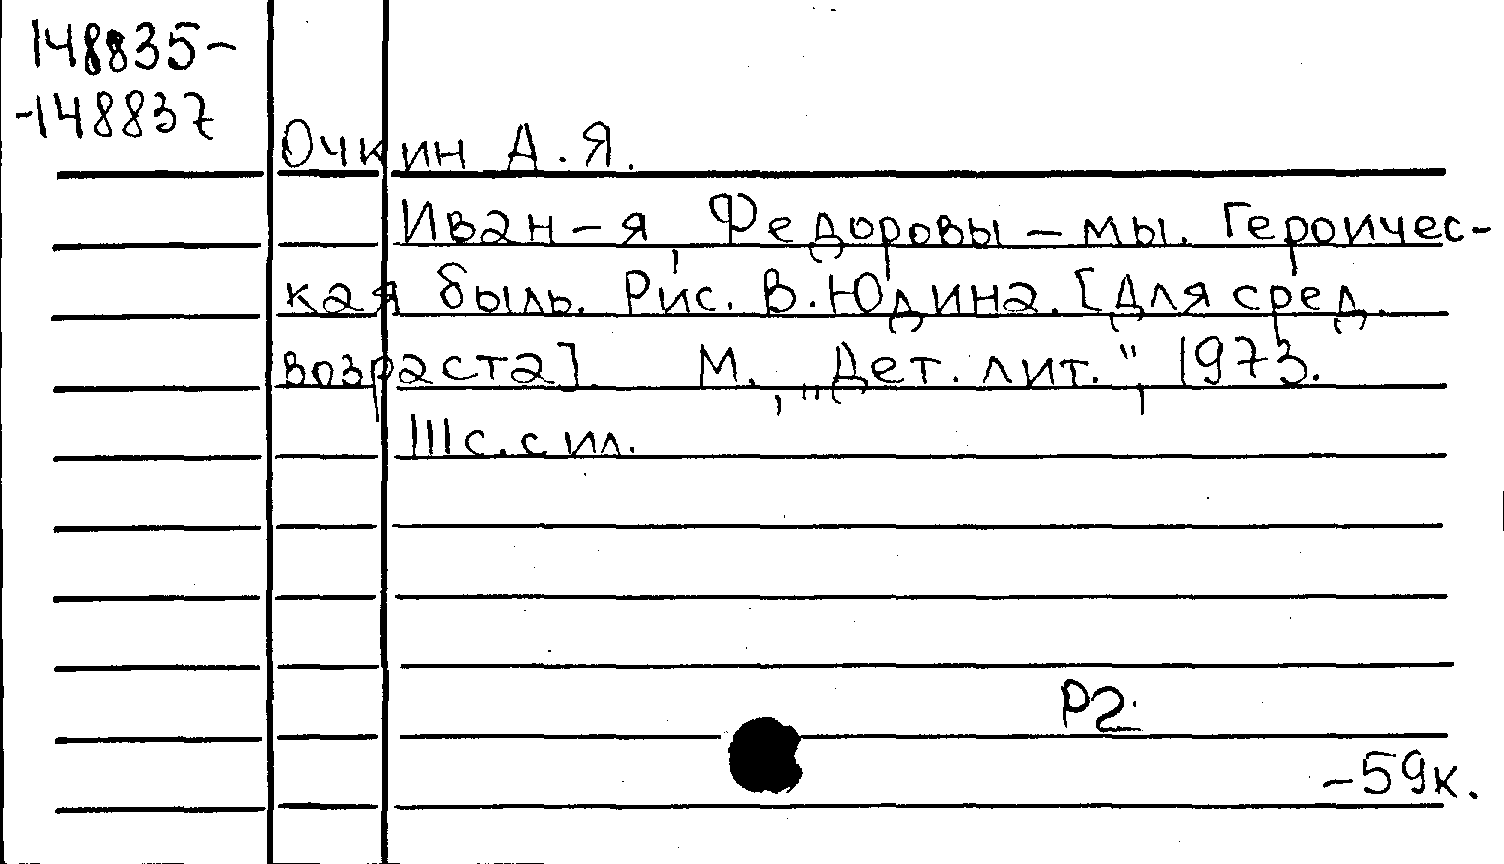 148835-
-148837
Очкин А.Я.
Иван-я, Федоровы - мы. Героичес-
кая быль. Рис. В.Юдина. [Для сред.
возраста]. М., „Дет. лит.", 1973.
111с. с ил.
Р2
-59к.